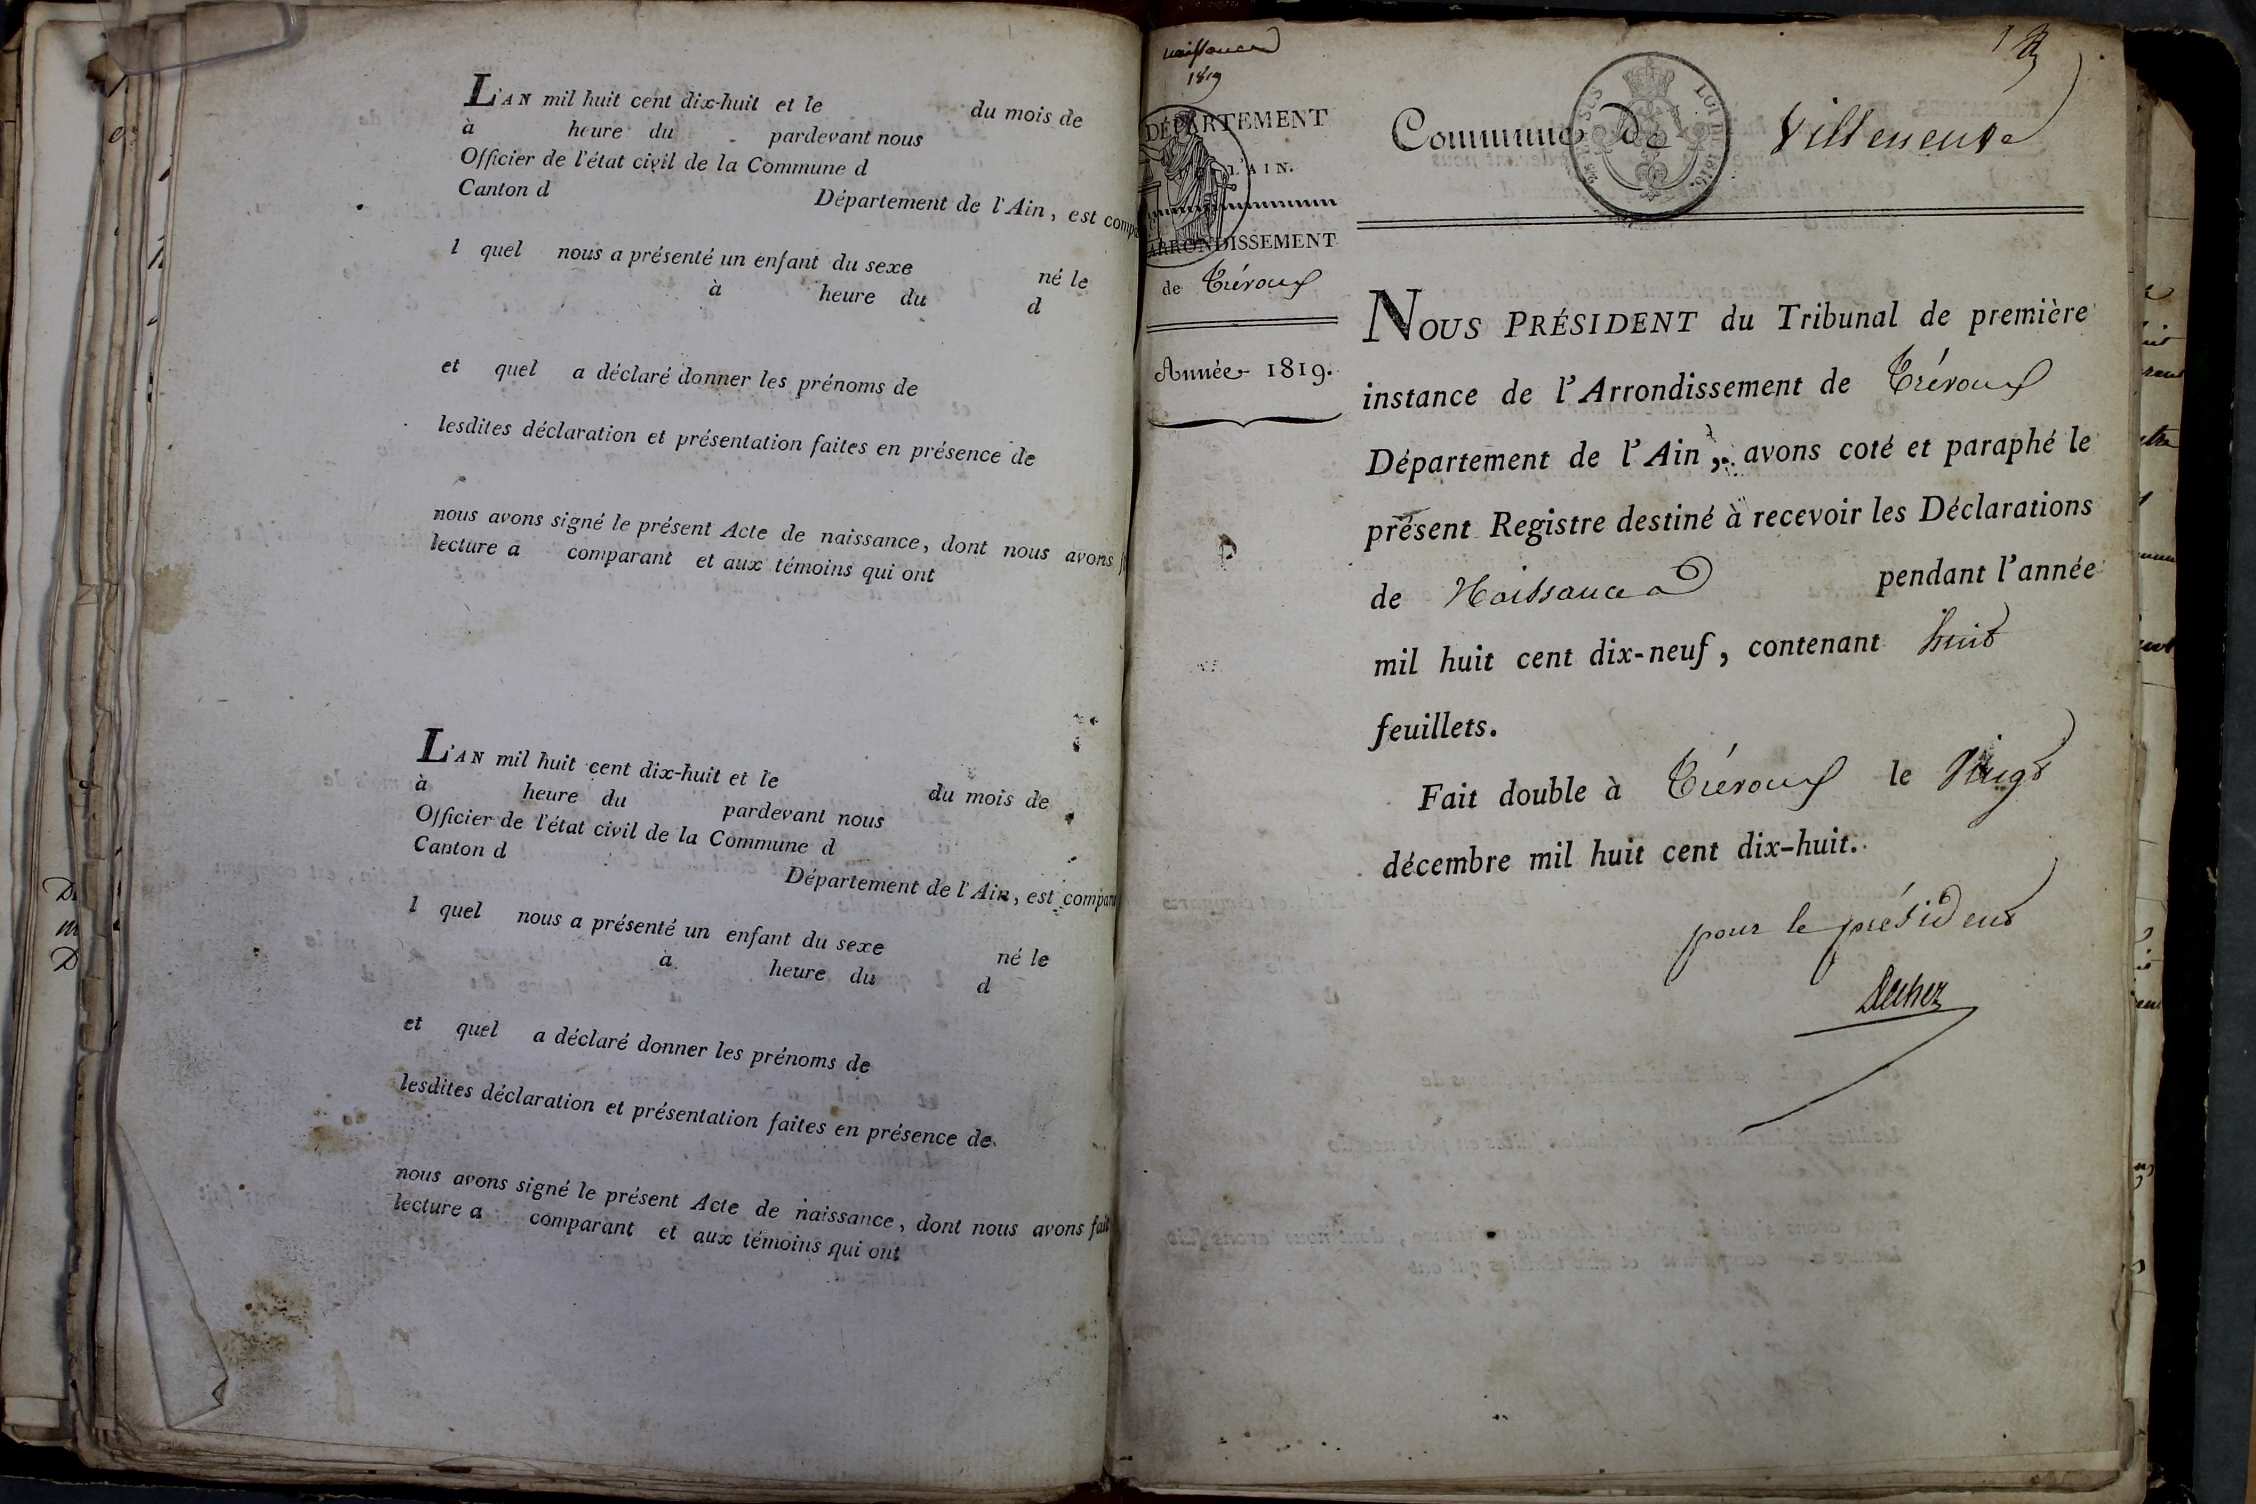 L'AN mil huit cent dix-huit et le du mois de
à heure du pardevant nous
Officier de l'état civil de la Commune d
Canton d Département de l'Ain, est compa
l quel nous a présenté un enfant du sexe né le
à heure du d
et quel a déclaré donner les prénoms de
lesdites déclaration et présentation faites en présence de
nous avons signé le présent Acte de naissance, dont nous avons f
lecture a comparant et aux témoins qui ont
L'AN mil huit cent dix-huit et le du mois de
à heure du pardevant nous
Officier de l'état civil de la Commune d
Canton d Département de l'Ain, est compar
l quel nous a présenté un enfant du sexe né le
à heure du d
et quel a déclaré donner les prénoms de
lesdites déclaration et présentation faites en présence de
nous avons signé le présent Acte de naissance, dont nous avons fait
lecture a comparant et aux témoins qui ont
naissances
1819
DÉPARTEMENT
L'AIN.
ARRONDISSEMENT
de Trévoux
Année 1819.
1
Commune de Villeneuve
LOI DE 1816.
NOUS PRÉSIDENT du Tribunal de première
instance de l'Arrondissement de Trévoux
Département de l'Ain, avons coté et paraphé le
présent Registre destiné à recevoir les Déclarations
de Naissances pendant l'année
mil huit cent dix-neuf, contenant huit
feuillets.
Fait double à Trévoux le Vingt
décembre mil huit cent dix-huit.
pour le président